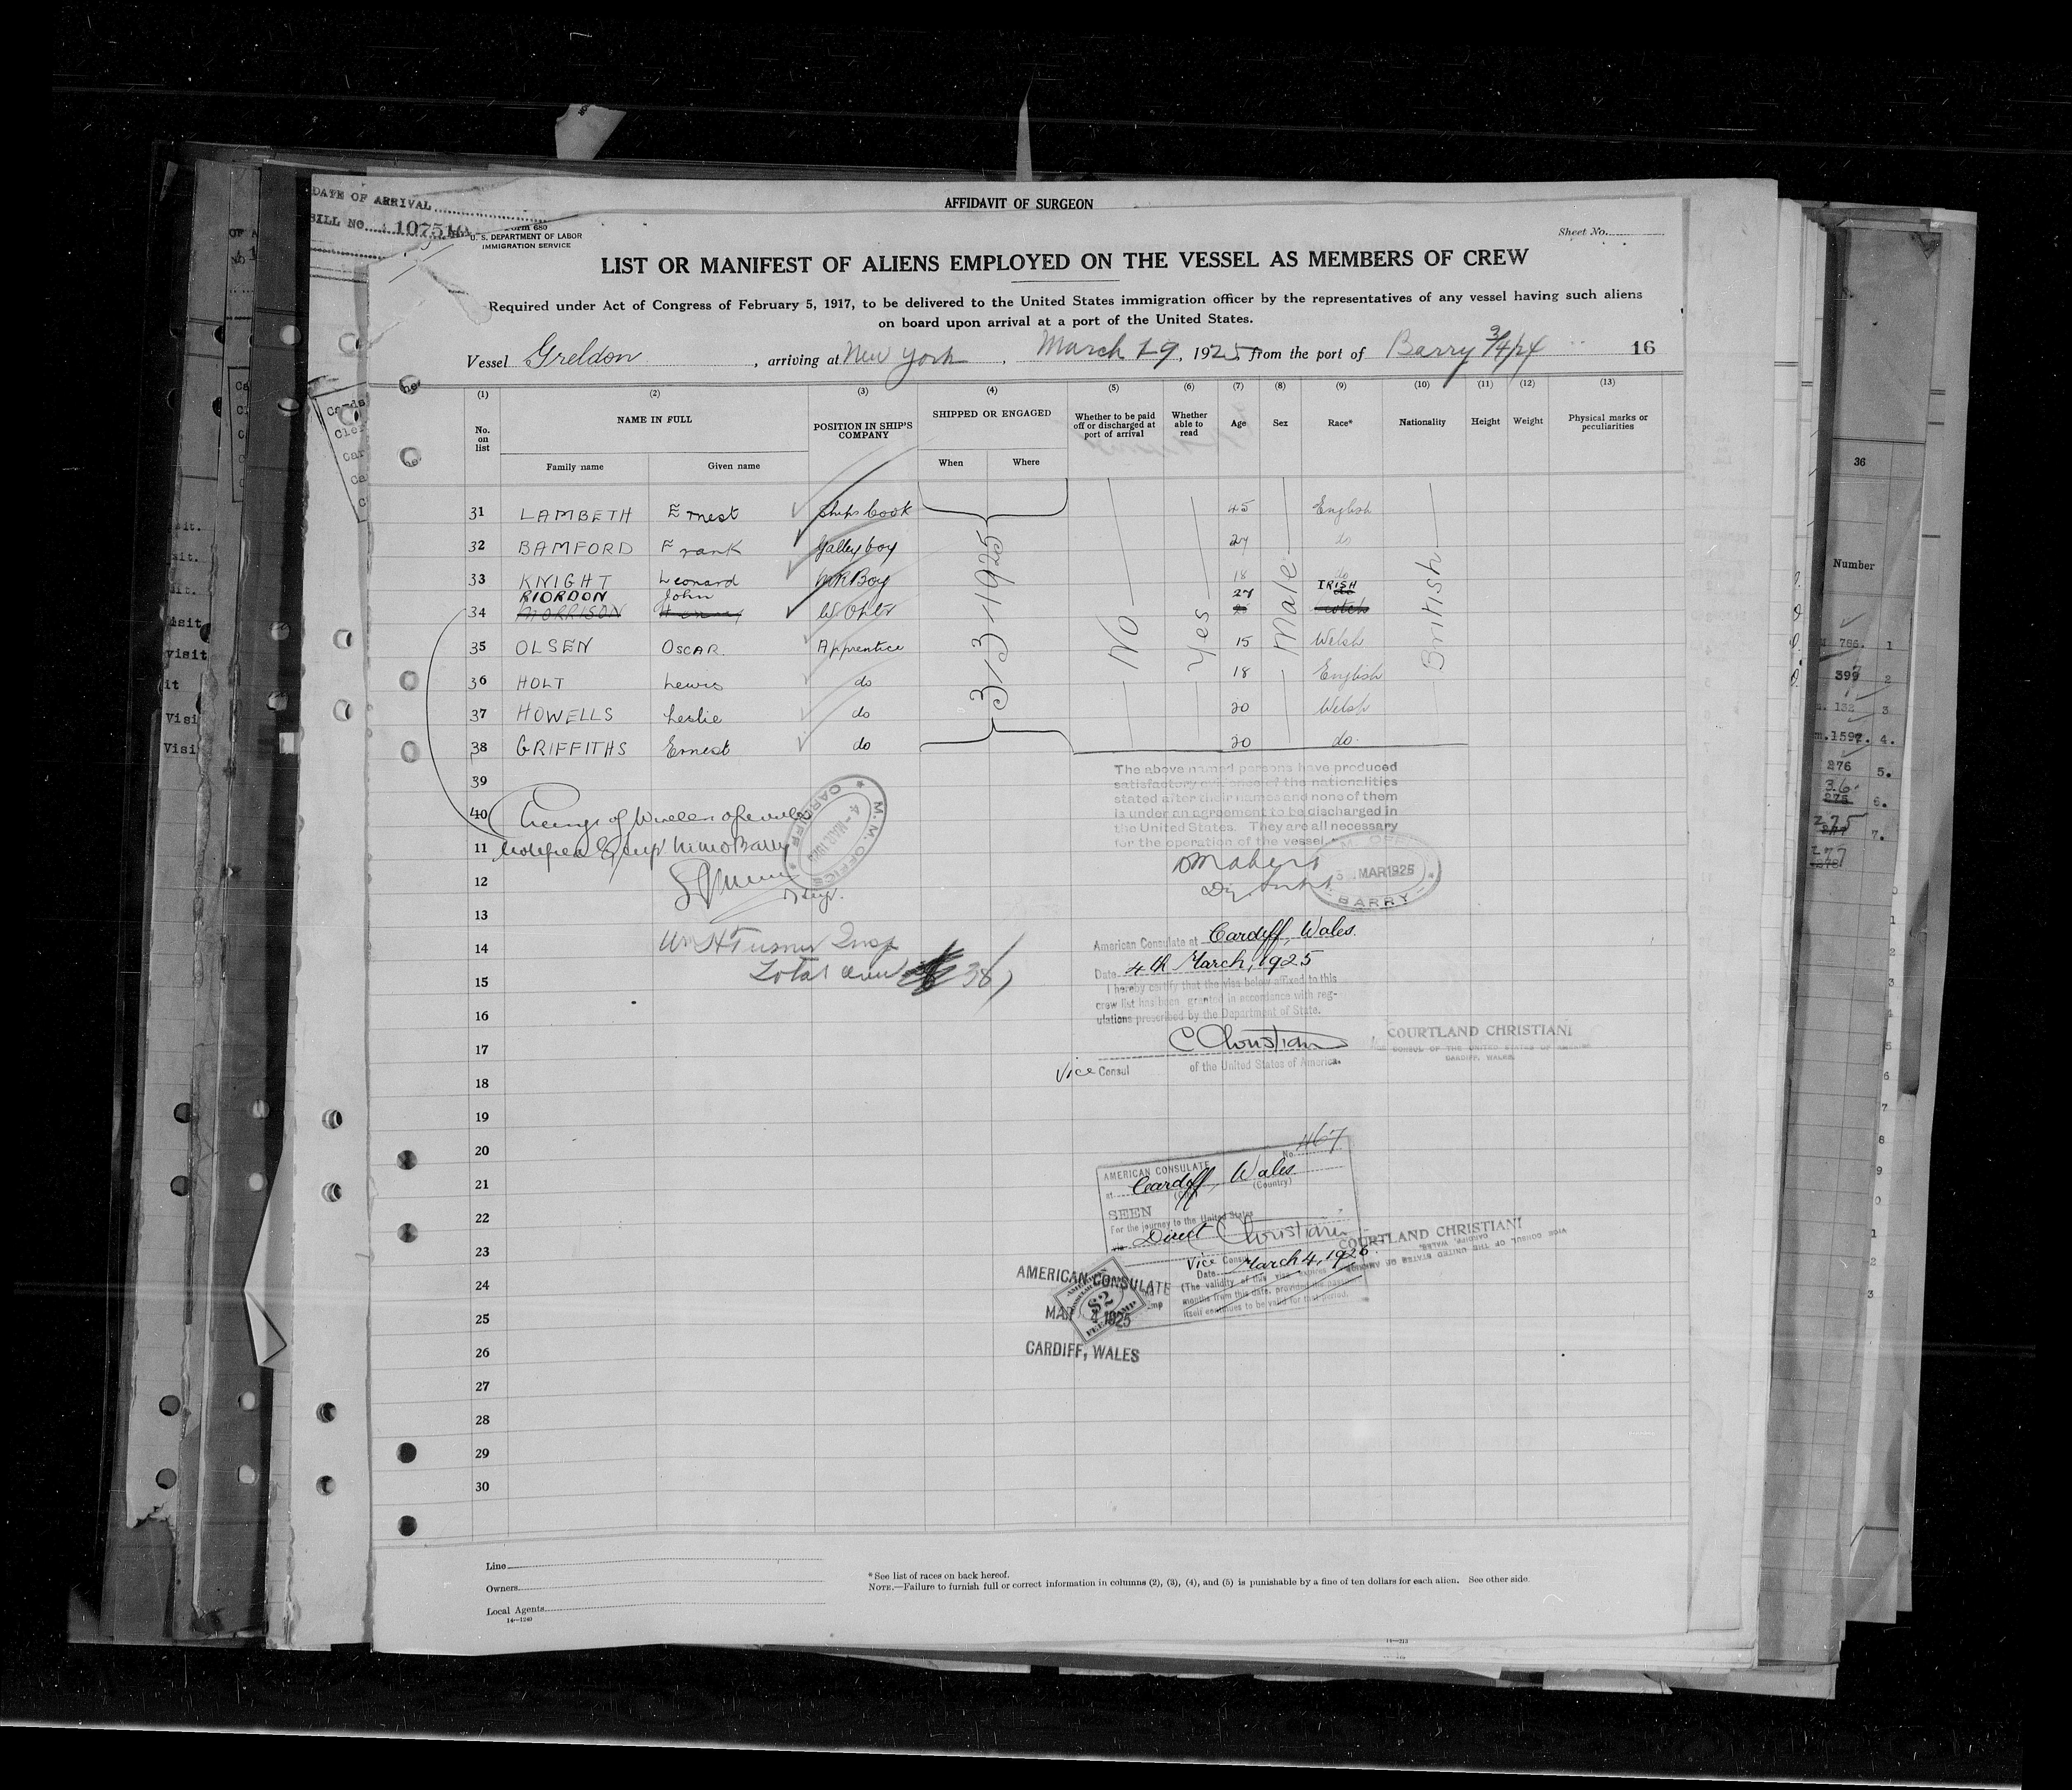 DATE OF ARRIVAL
BILL NO. 10751
AFFIDAVIT OF SURGEON
Form 680
U. S. DEPARTMENT OF LABOR
IMMIGRATION SERVICE
Sheet No.
LIST OR MANIFEST OF ALIENS EMPLOYED ON THE VESSEL AS MEMBERS OF CREW
Required under Act of Congress of February 5, 1917, to be delivered to the United States immigration officer by the representatives of any vessel having such aliens
on board upon arrival at a port of the United States.
Vessel Greldon, arriving at New York, March 19, 1925 from the port of Barry 16
(1) (2) (3) (4) (5) (6) (7) (8) (9) (10) (11) (12) (13)
No. on list NAME IN FULL POSITION IN SHIP'S COMPANY SHIPPED OR ENGAGED Whether to be paid off or discharged at port of arrival Whether able to read Age Sex Race* Nationality Height Weight Physical marks or peculiarities
Family name Given name When Where
31 LAMBETH Ernest Ships Cook 45 English
32 BAMFORD Frank Galley boy 27 do
33 KNIGHT Leonard M R Boy 18 do
RIORDON John 27 IRISH
34 MORRISON W. Optr
35 OLSEN OSCAR. Apprentice 15 Welsh
36 HOLT Lewis do 18 English
37 HOWELLS Leslie do 20 Welsh
38 GRIFFITHS Ernest do 20 do.
3/3/1925 No Yes Male British
39
40 Change of Wireless operator
11 notified
12
13
14
15
16
17
18
19
20
21
22
23
24
25
26
27
28
29
30
M. M. OFFICE CARDIFF
4 - MAR 1925
Wm H Turner Insp
Total crew 38
The above named persons have produced
satisfactory evidence of the nationalities
stated after their names and none of them
is under an agreement to be discharged in
the United States. They are all necessary
for the operation of the vessel.
MAR 1925
BARRY
American Consulate at Cardiff, Wales.
Date 4th March, 1925
I hereby certify that the visa below affixed to this
crew list has been granted in accordance with reg-
ulations prescribed by the Department of State.
C Christiani
Vice Consul of the United States of America.
COURTLAND CHRISTIANI
VICE CONSUL OF THE UNITED STATES OF AMERICA
CARDIFF, WALES.
No. 467
AMERICAN CONSULATE
at Cardiff, Wales
(City) (Country)
SEEN
For the journey to the United States
via Direct
C Christiani
COURTLAND CHRISTIANI
VICE CONSUL OF THE UNITED STATES OF AMERICA
CARDIFF, WALES.
Vice Consul
Date March 4, 1925.
(The validity of this visa expires
months from this date, provided the passport
itself continues to be valid for that period.
AMERICAN CONSULATE
MAR 4 1925
CARDIFF, WALES
AMERICAN CONSULAR $2 FEE STAMP
Line
Owners
Local Agents
14—1240
* See list of races on back hereof.
NOTE.—Failure to furnish full or correct information in columns (2), (3), (4), and (5) is punishable by a fine of ten dollars for each alien. See other side.
36
Number